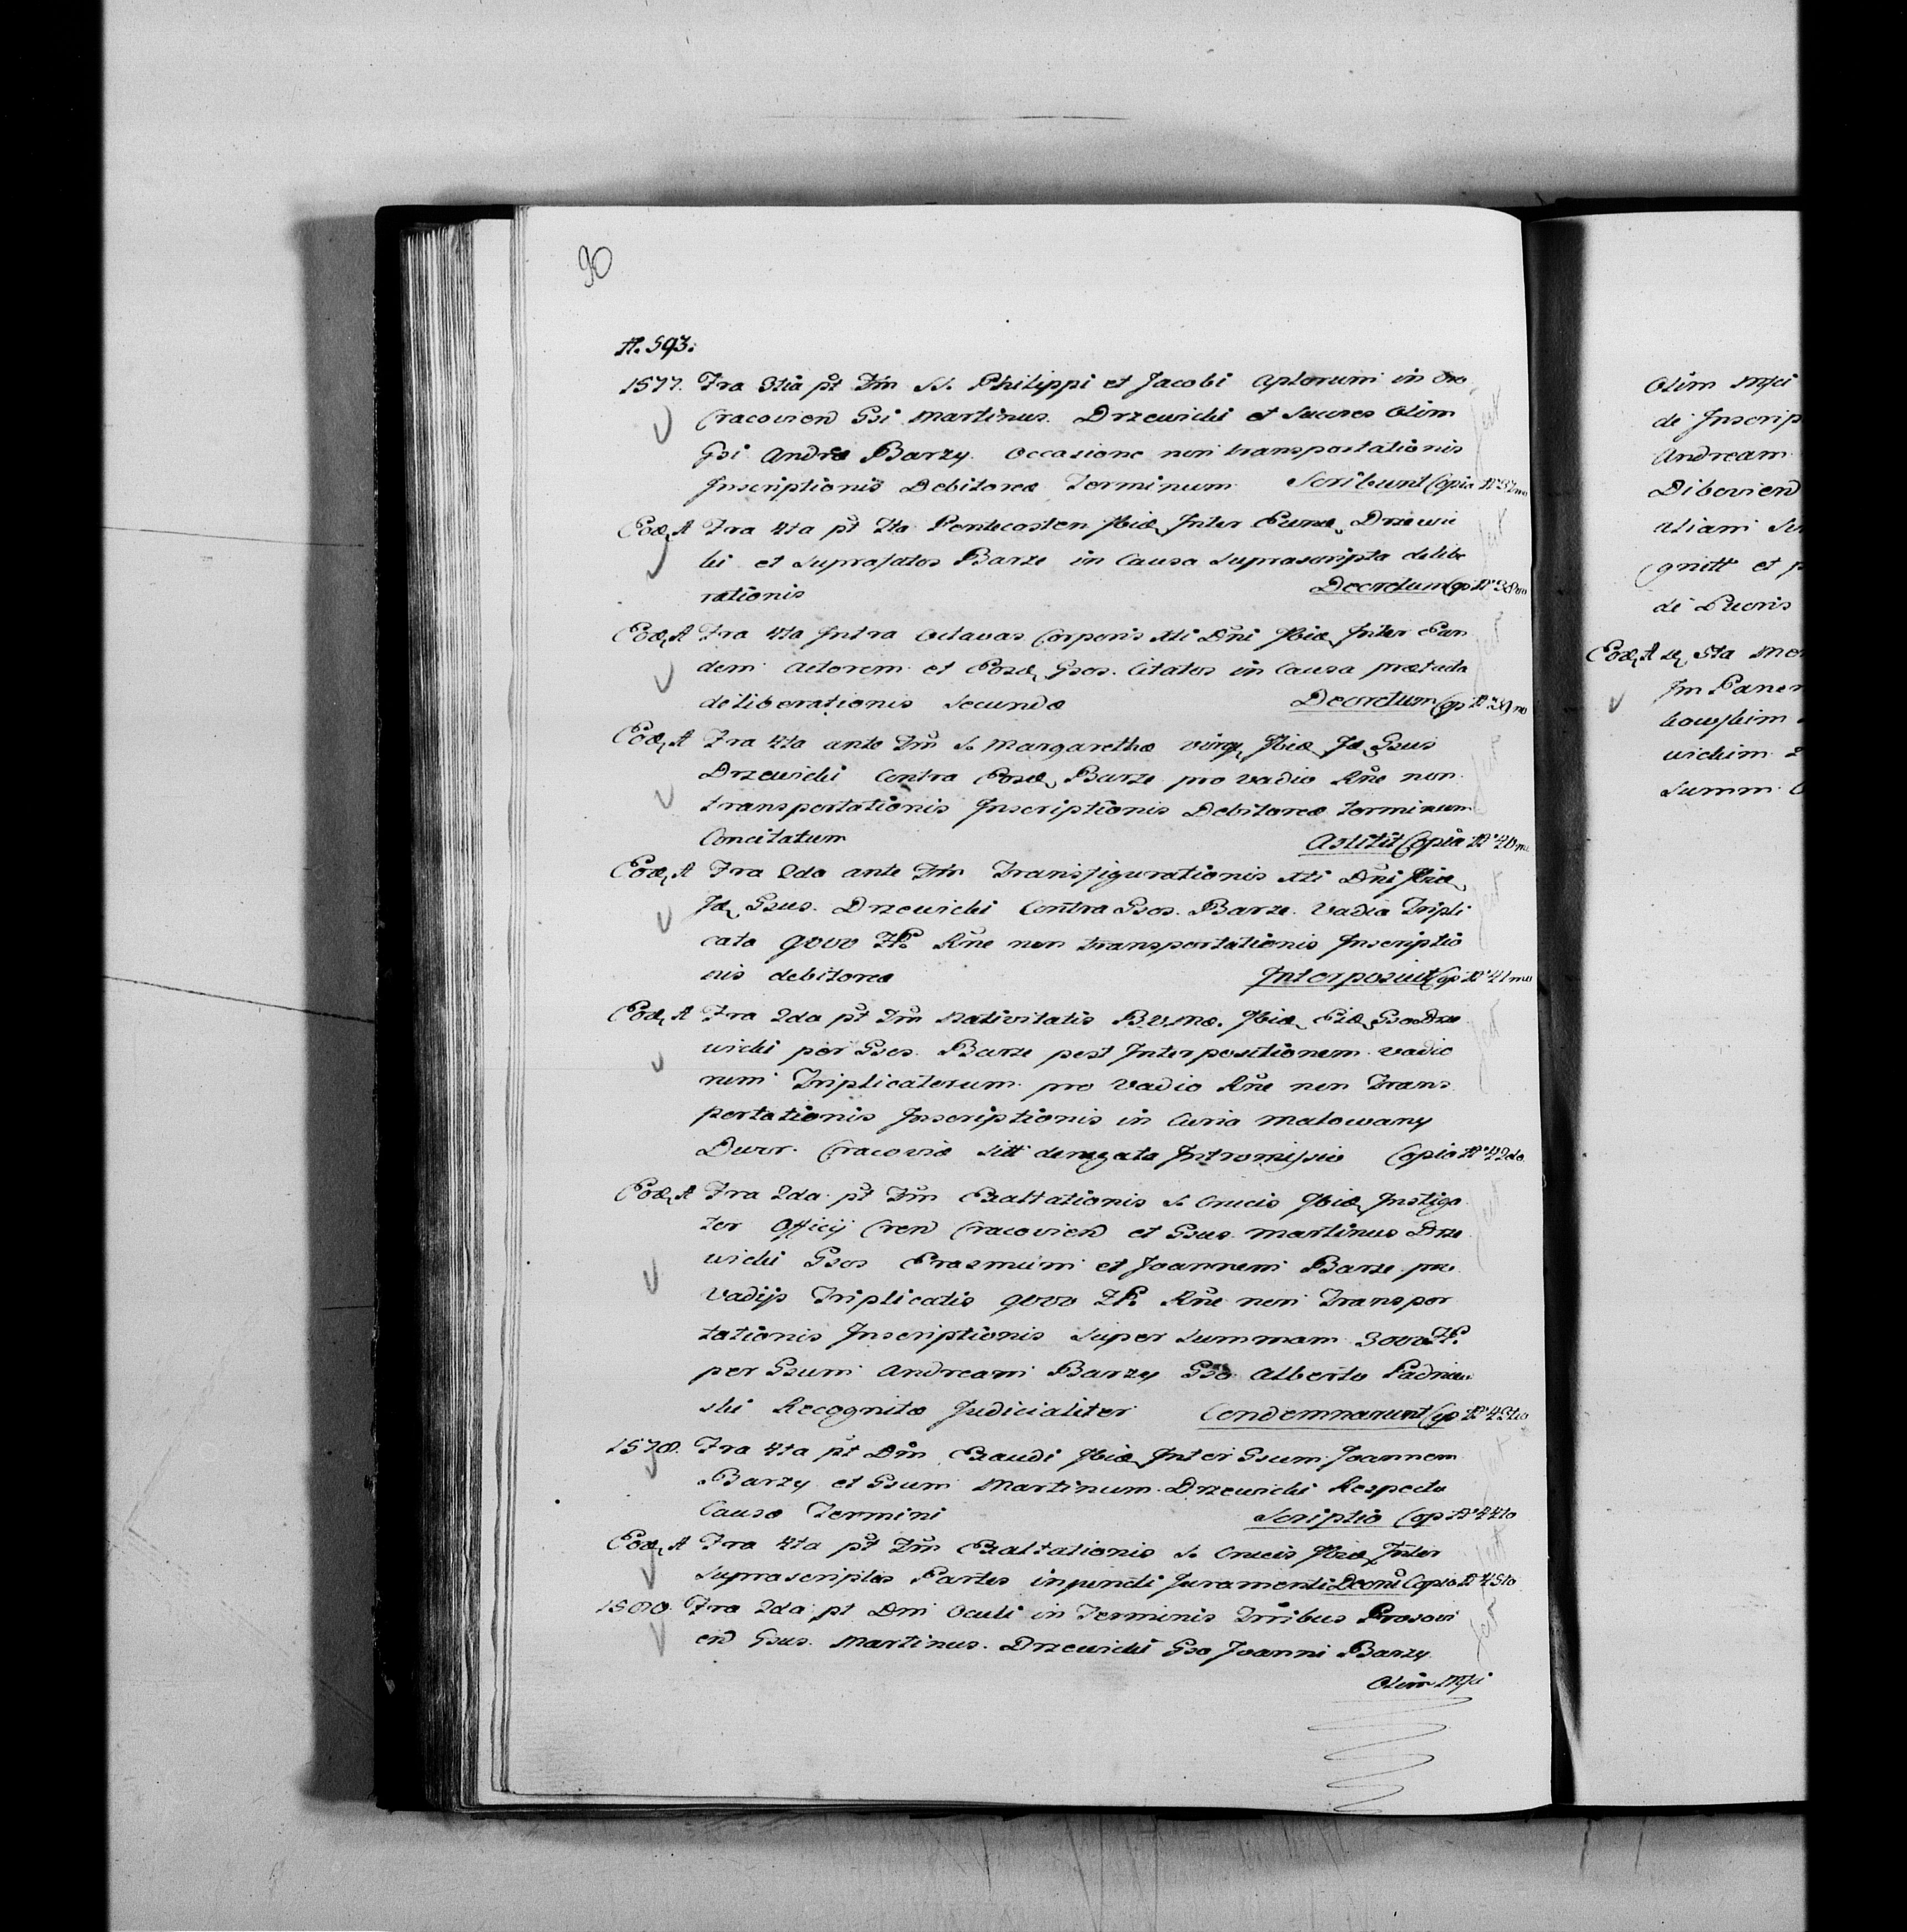 90
A. 593.
1577. Fra 3tia pt Fm SS. Philippi et Jacobi Aplorum in Oro
Cracovien Gsi Martinus Drzewicki et Succes Olim
Gsi Andreæ Barzy Occasione non transportationis
Inscriptionis Debitoreæ Terminum Scribunt Copia N° 37mo
Eod, A Fra 4ta pt Fta Pentecosten Ibid, Inter Eund, Drzewic
ki et Suprafatos Barze in Causa Suprascripta delibe
rationis Decretum Cop N° 38vo
Eod, A Fra 4ta Intra Octavas Corporis Xti Dni Ibid, Inter Eun
dem Actorem et Eosd, Gsos. Citatos in Causa prætacta
deliberationis Secundæ Decretum Cop N° 39no
Eod, A Fra 4ta ante Fm S. Margarethæ Virg, Ibid, Id, Gsus
Drzewicki Contra Eosd, Barze pro vadio Rne non
transportationis Inscriptionis Debitoreæ terminum
Concitatum Astitit Copia N° 40mo
Eod, A Fra 2da ante Fm Transfigurationis Xti Dni Ibid,
Id, Gsus. Drzewicki Contra Gsos. Barze. Vadia Tripli
cata 9000 Fl. Rne non transportationis Inscriptio
nis debitoreæ Interposuit Cop N° 41mo
Eod, A Fra 2da pt Fm Nativitatis B.V.Mæ. Ibid, Eid, Gso Drze
wicki per Gsos. Barze post Interpositionem vadio
rum Triplicatorum pro Vadio Rne non Trans
portationis Inscriptionis in Curia Malowany
Dwor. Cracoviæ Sitt denegata Intromissio Copia N° 42do
Eod, A Fra 2da pt Fm Exaltationis S. Crucis Ibid, Instiga
tor Officij Cren Cracovien et Gsus Martinus Drze
wicki Gsos Erasmum et Joannem Barze pro
Vadijs Triplicatis 9000 Fl. Rne non Transpor
tationis Inscriptionis Super Summam 3000 Fl.
per Gsum Andream Barzy Gso Alberto Padniew
ski Recognitæ Judicialiter Condemnarunt Cop N° 43tio
1578. Fra 4ta pt Dm Exaudi Ibid, Inter Gsum Joannem
Barzy et Gsum Martinum Drzewicki Respectu
Causæ Termini Scriptio Cop N° 44to
Eod, A Fra 4ta pt Fm Exaltationis S. Crucis Ibid, Inter
Suprascriptas Partes injuncti Juramenti Decrm Copia N° 45to
1580 Fra 2da pt Dm Oculi in Terminis Trribus Prosovi
en Gsus. Martinus. Drzewicki Gso Joanni Barzy
Olim Mfci
Olim Mfci
de Inscrip
Andream
Dibovien
atiam
gnitt et
de
Eod, A 5ta
Im
Summ